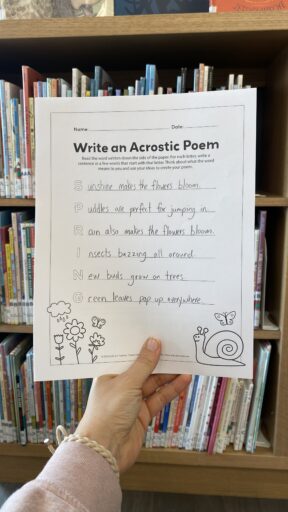 Name: Date:
Write an Acrostic Poem
Read the word written down the side of the paper. For each letter, write a
sentence or a few words that start with that letter. Think about what the word
means to you and use your ideas to create your poem.
Sunshine makes the flowers bloom.
Puddles are perfect for jumping in.
Rain also makes the flowers bloom.
Insects buzzing all around.
New buds grow on trees.
Green leaves pop up everywhere.